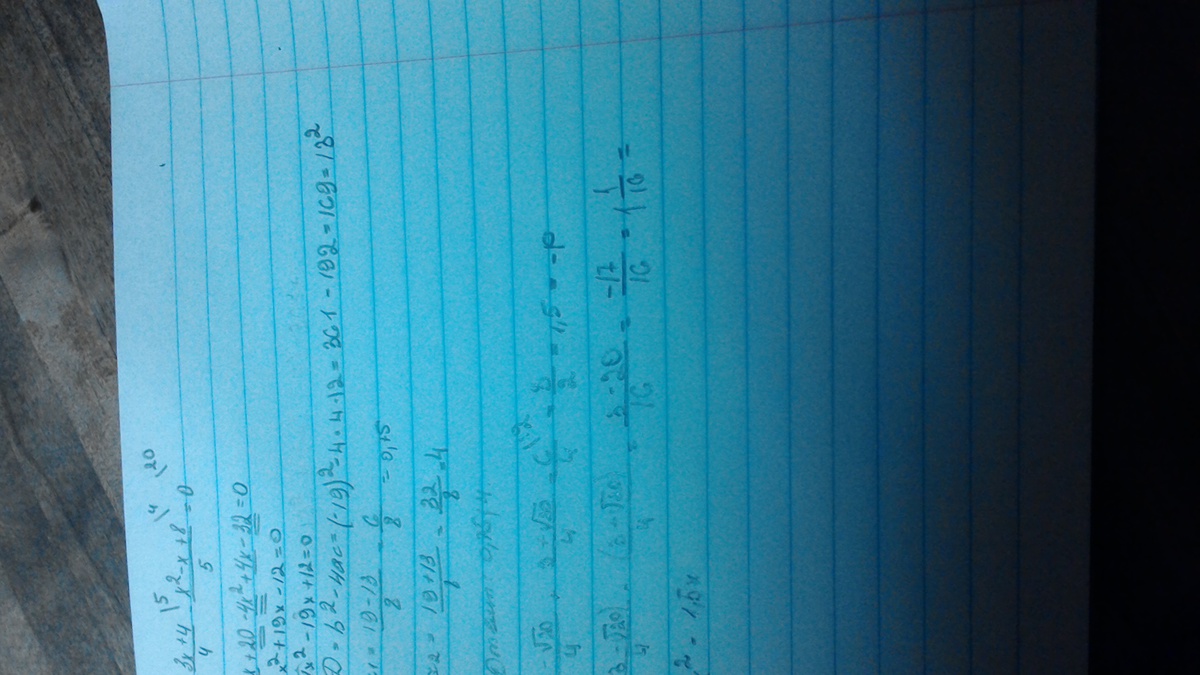 3x+4/4 \5 - x²-x+8/5 \4 = 0 \20
x+20-4x²+4x-32=0
x²+19x-12=0
x²-19x+12=0
D=b²-4ac=(-19)²-4·4·12=361-192=169=13²
x1=19-13/8=6/8=0,75
x2=19+13/8=32/8=4
Ответ: 0,75; 4
-√20/4 + 3+√20/4 = 6/4 = 3/2 = 1,5 = -p
3-√20)/4 · (3+√20)/4 = 3-20/16 = -17/16 = 1 1/16 =
2 = 1,5x